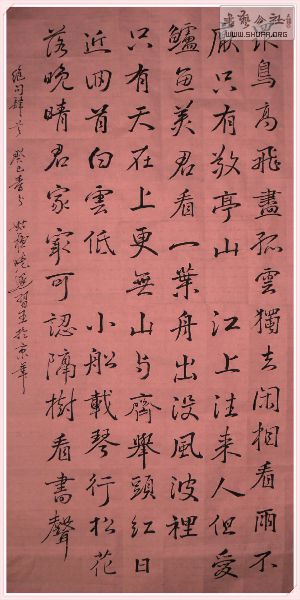 鳥高飛盡孤雲獨去閑相看兩不
厭只有敬亭山 江上往来人但愛
鱸魚美君看一葉舟出没風波裡
只有天在上更無山与齊舉頭紅日
近回首白雲低 小船載琴行松花
落晚晴君家冣可認隔樹看書聲
絕句肆首 癸巳春 於京華
WWW.SHUFA.ORG